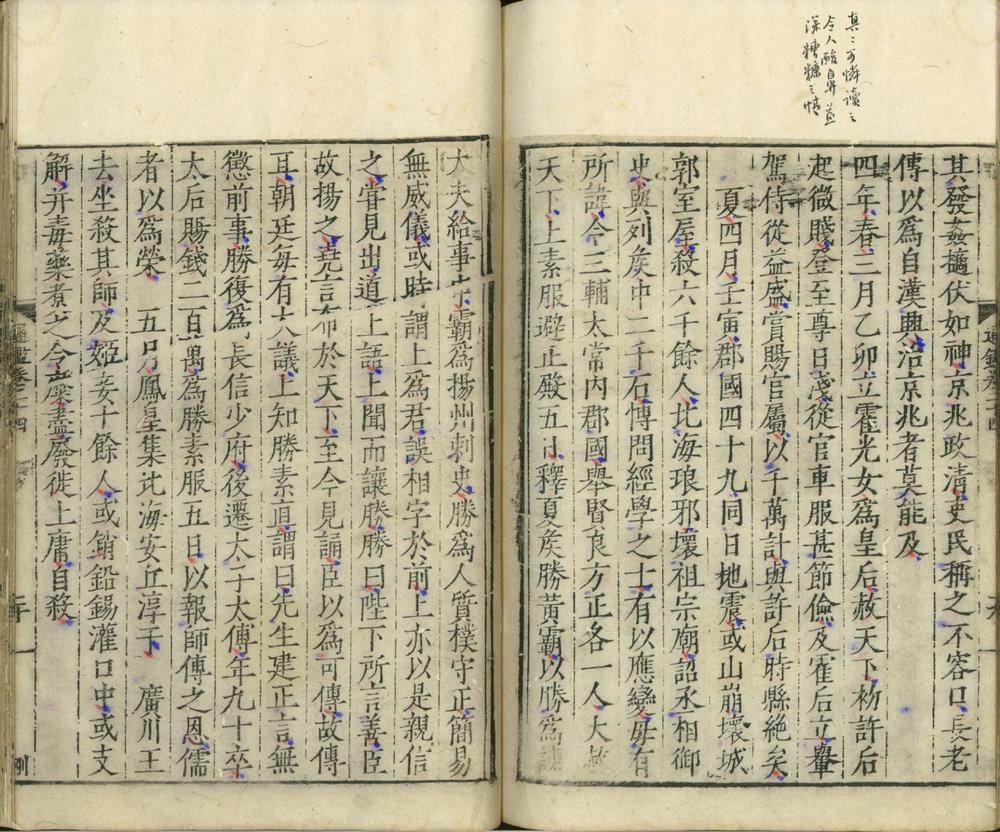 真〻可憐讀之
令人酸鼻益
深糟糠之情
其發姦擿伏如神京兆政清吏民稱之不容口長老
傳以爲自漢興治京兆者莫能及
四年春三月乙卯立霍光女爲皇后赦天下初許后
起微賤登至尊日淺從官車服甚節儉及霍后立轝
駕侍從益盛賞賜官屬以千萬計與許后時縣絶矣
夏四月壬寅郡國四十九同日地震或山崩壞城
郭室屋殺六千餘人北海琅邪壞祖宗廟詔丞相御
史與列矦中二千石博問經學之士有以應變毋有
所諱令三輔太常內郡國舉賢良方正各一人大赦
天下上素服避正殿五日釋夏矦勝黃霸以勝爲諫
大夫給事中霸爲揚州刺史勝爲人質樸守正簡易
無威儀或時謂上爲君誤相字於前上亦以是親信
之嘗見出道上語上聞而讓勝勝曰陛下所言善臣
故揚之堯言布於天下至今見誦臣以爲可傳故傳
耳朝廷每有大議上知勝素直謂曰先生建正言無
懲前事勝復爲長信少府後遷太子太傅年九十卒
太后賜錢二百萬爲勝素服五日以報師傅之恩儒
者以爲榮 五月鳳皇集北海安丘淳于 廣川王
去坐殺其師及姬妾十餘人或銷鉛錫灌口中或支
解并毒藥煮之令糜盡廢徙上庸自殺